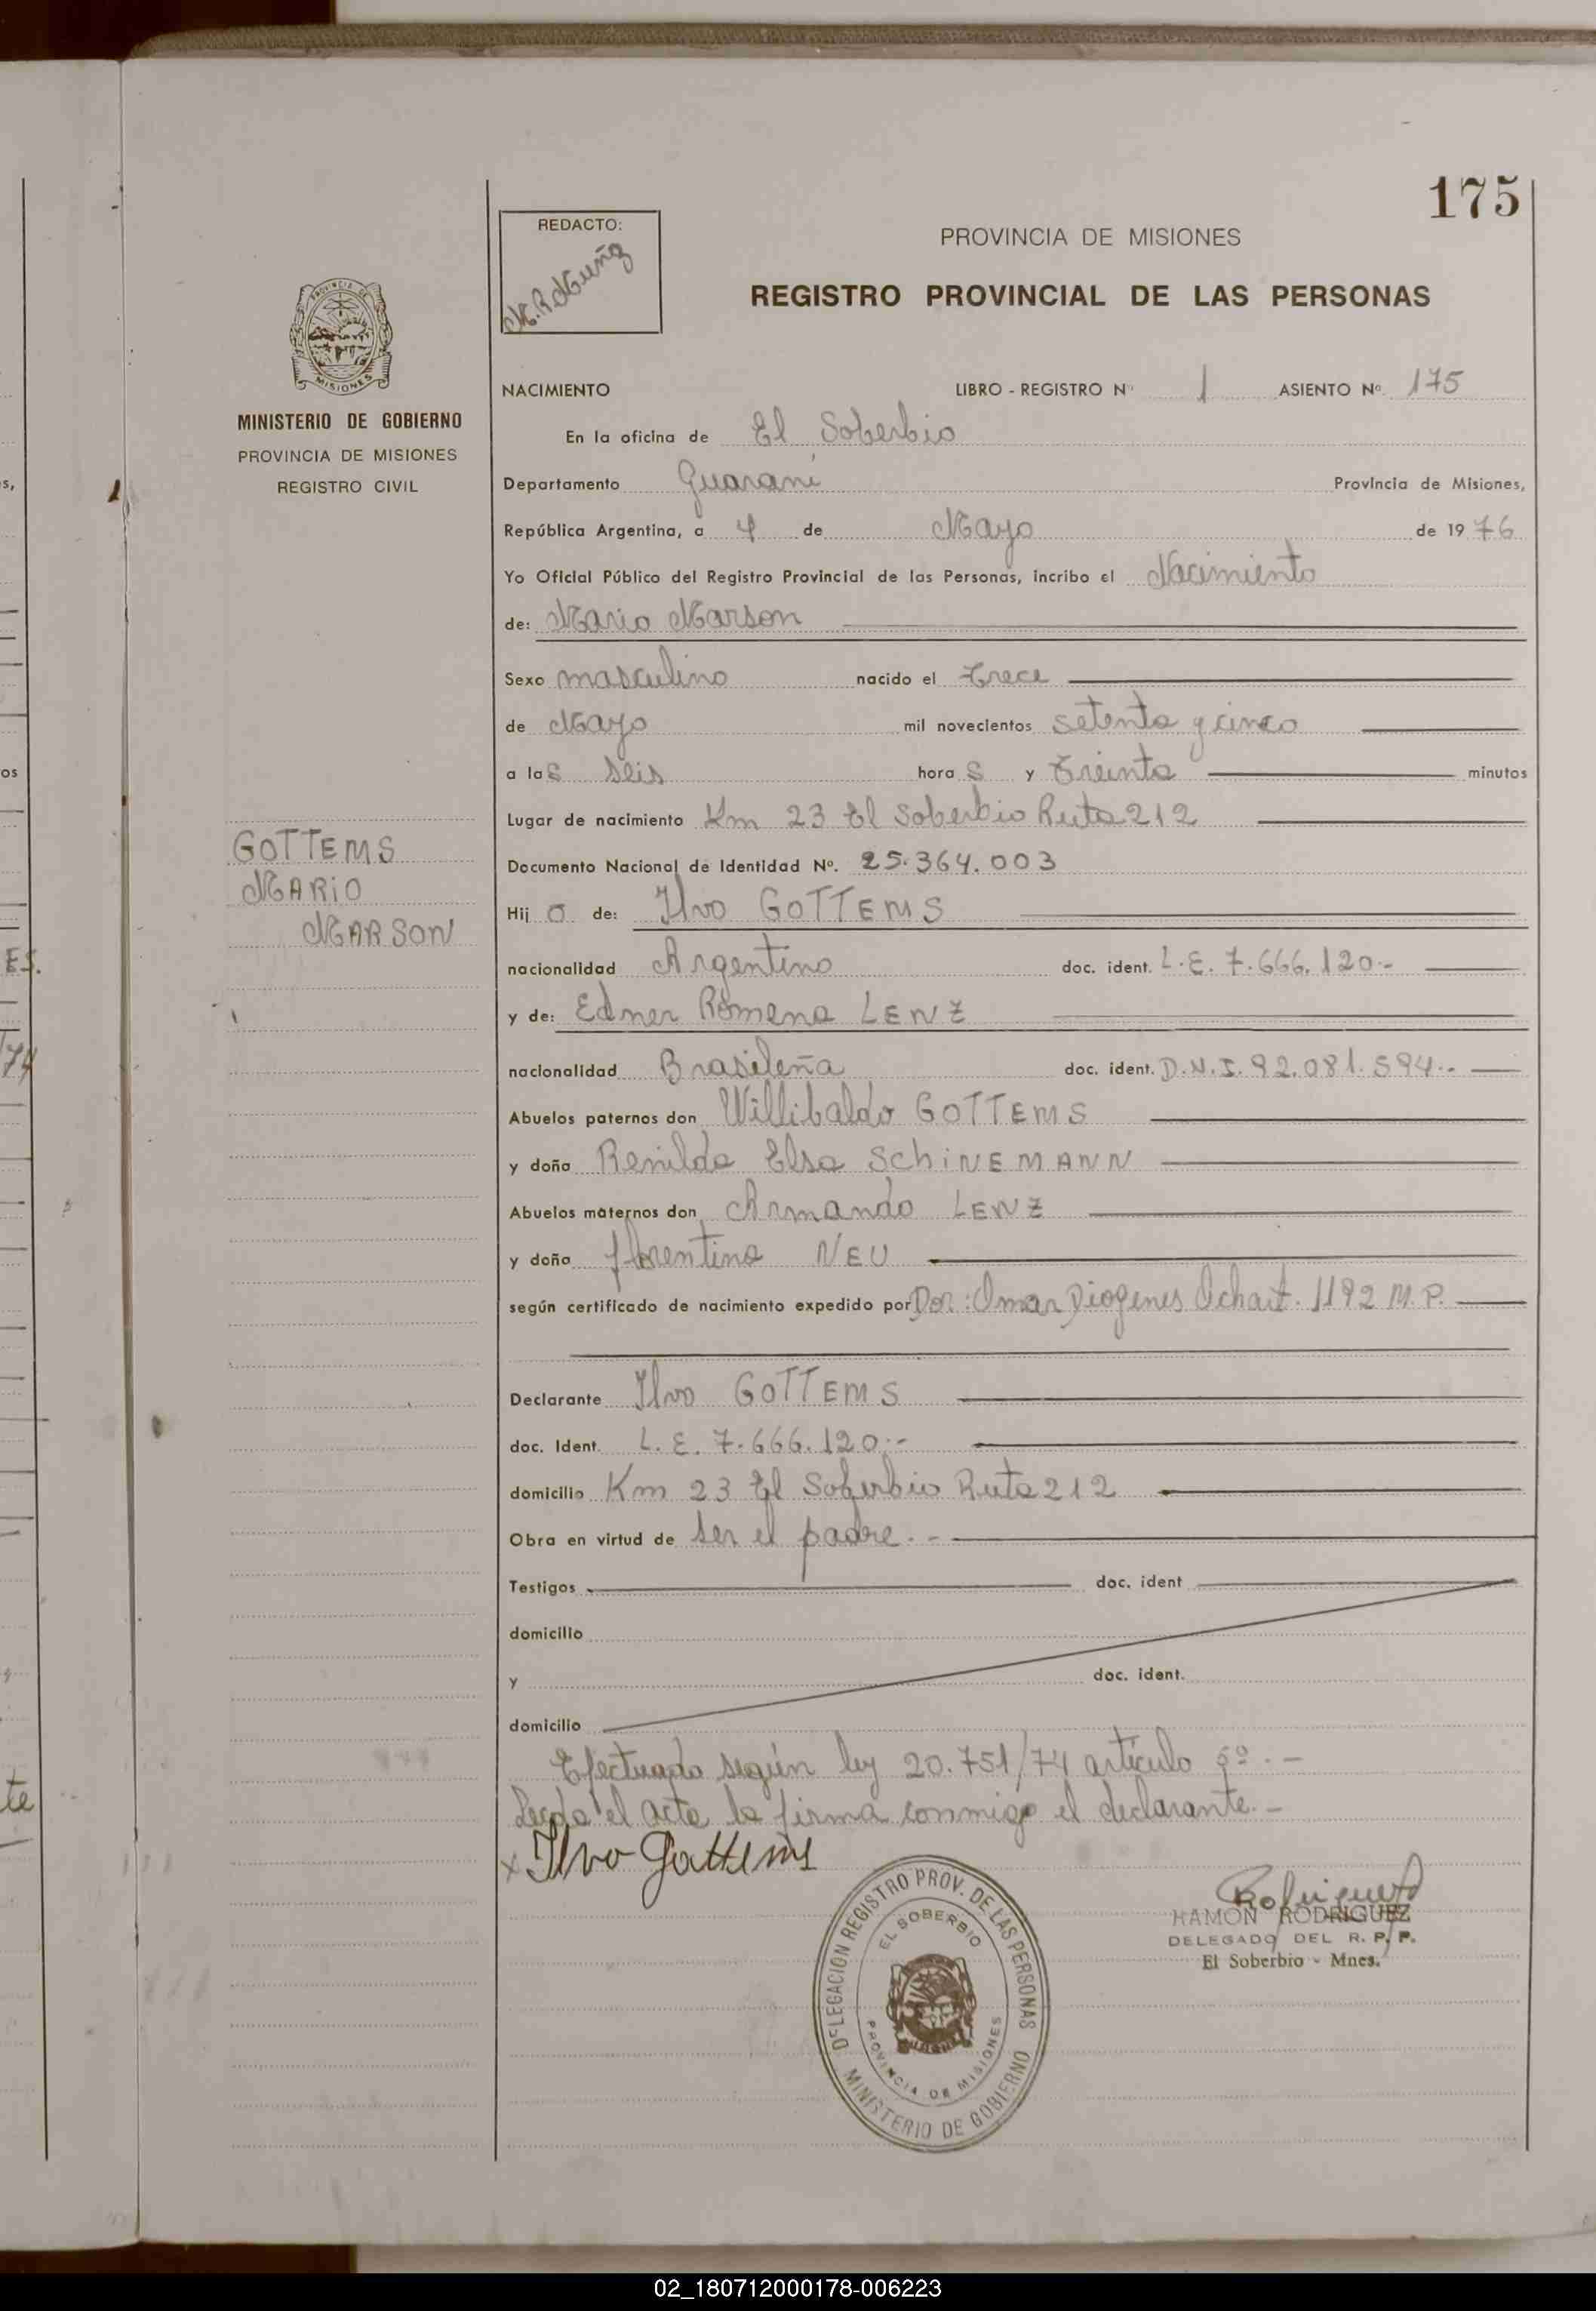 175
REDACTO:
PROVINCIA DE MISIONES
REGISTRO PROVINCIAL DE LAS PERSONAS
PROVINCIA DE
MISIONES
MINISTERIO DE GOBIERNO
PROVINCIA DE MISIONES
REGISTRO CIVIL
NACIMIENTO LIBRO - REGISTRO Nº 1 ASIENTO Nº 175
En la oficina de El Soberbio
Departamento Guaraní Provincia de Misiones,
República Argentina, a 4 de Mayo de 1976
Yo Oficial Público del Registro Provincial de las Personas, incribo el Nacimiento
de: Mario Marson
Sexo masculino nacido el trece
de Mayo mil novecientos setenta y cinco
a las seis hora s y treinta minutos
Lugar de nacimiento Km 23 El Soberbio Ruta 212
GOTTEMS
MARIO
MARSON
Documento Nacional de Identidad Nº. 25.364.003
Hij o de: Ilvo GOTTEMS
nacionalidad Argentino doc. ident. L.E. 7.666.120.-
y de: Edner Romena LENZ
nacionalidad Brasileña doc. ident. D.N.I. 92.081.594.-
Abuelos paternos don Willibaldo GOTTEMS
y doña Renilda Elsa SCHINEMANN
Abuelos maternos don Armando LENZ
y doña florentina NEU
según certificado de nacimiento expedido por Dor: Omar Diogenes Ochait. 1192 M.P.
Declarante Ilvo GOTTEMS
doc. Ident. L.E. 7.666.120.-
domicilio Km 23 El Soberbio Ruta 212
Obra en virtud de ser el padre.-
Testigos doc. ident
domicilio
y doc. ident.
domicilio
Efectuado según ley 20.751/74 artículo 5º.-
Leida el acta la firma conmigo el declarante.-
x Ilvo Gottems
DELEGACION REGISTRO PROV. DE LAS PERSONAS
EL SOBERBIO
PROVINCIA DE MISIONES
MINISTERIO DE GOBIERNO
RAMON RODRIGUEZ
DELEGADO DEL R. P. P.
El Soberbio - Mnes.
02_180712000178-006223